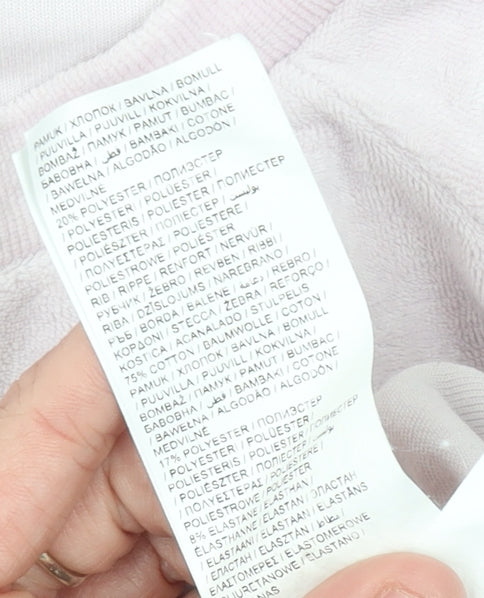 PAMUK / ХЛОПОК / BAVLNA / BOMULL
/ PUUVILLA / PUUVILL / KOKVILNA /
BOMBAŽ / ПАМУК / PAMUT / BUMBAC /
БАВОВНА / قطن / BAMBAKI / COTONE
/ BAWEŁNA / ALGODÃO / ALGODÓN /
MEDVILNĖ
20% POLYESTER / ПОЛИЭСТЕР
/ POLYESTER / POLÜESTER /
POLIESTERIS / POLIESTER / ПОЛИЕСТЕР
/ POLIÉSZTER / ПОЛІЕСТЕР / بوليستر
/ ΠΟΛΥΕΣΤΕΡΑΣ / POLIESTERE /
POLIESTROWE / POLIÉSTER
RIB / RIPPE / RENFORT / NERVÜR /
РУБЧИК / ŽEBRO / REVBEN / RIBBI /
RIBA / DZĪSLOJUMS / NAREBRANO /
РЪБ / BORDA / BALENE / دعامة / REBRO /
КОРДОНІ / STECCA / ŻEBRA / REFORÇO /
KOSTICĂ / ACANALADO / STULPELIS
75% COTTON / BAUMWOLLE / COTON /
PAMUK / ХЛОПОК / BAVLNA / BOMULL
/ PUUVILLA / PUUVILL / KOKVILNA /
BOMBAŽ / ПАМУК / PAMUT / BUMBAC /
БАВОВНА / قطن / BAMBAKI / COTONE
/ BAWEŁNA / ALGODÃO / ALGODÓN /
MEDVILNĖ
17% POLYESTER / ПОЛИЭСТЕР
/ POLYESTER / POLÜESTER /
POLIESTERIS / POLIESTER / ПОЛИЕСТЕР
/ POLIÉSZTER / ПОЛІЕСТЕР / بوليستر
/ ΠΟΛΥΕΣΤΕΡΑΣ / POLIESTERE /
POLIESTROWE / POLIÉSTER
8% ELASTANE / ELASTHAN /
ELASTHANNE / ELASTAN / ЭЛАСТАН
/ ELASTAANI / ELASTAAN / ELASTĀNS
/ ЕЛАСТАН / ELASZTÁN / مطاط /
ΕΛΑΣΤΟΜΕΡΕΣ / ELASTOMEROWE
/ ELASTANO /